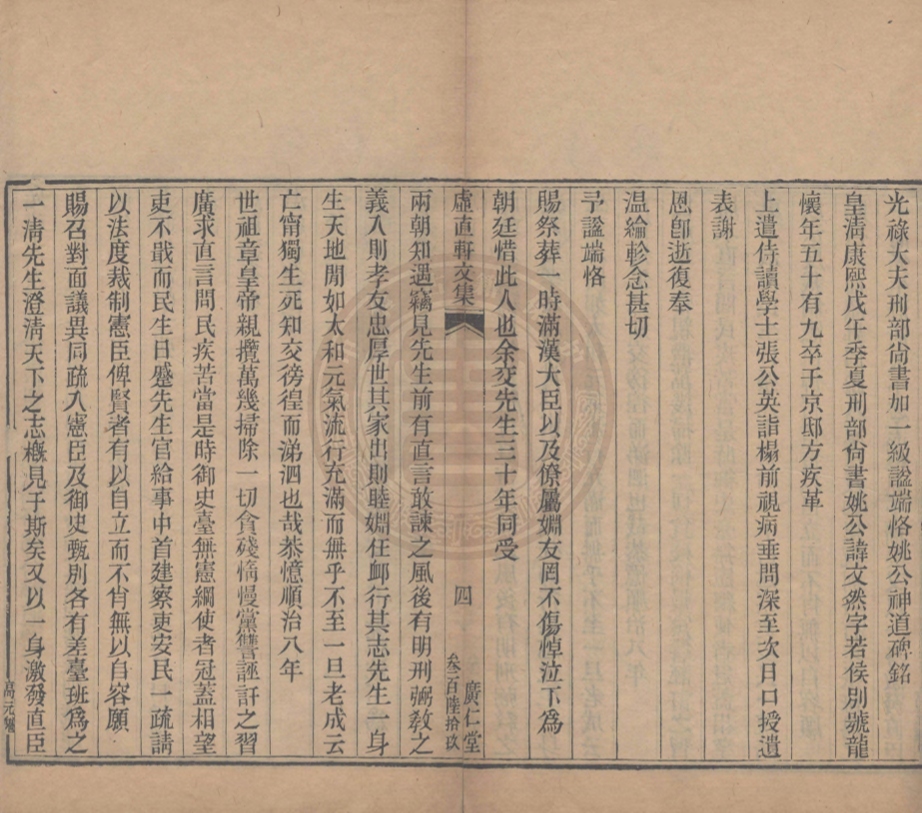 光祿大夫刑部尙書加一級謚端恪姚公神道碑銘
皇淸康熙戊午季夏刑部尙書姚公諱文然字若侯別號龍
懷年五十有九卒于京邸方疾革
上遣侍讀學士張公英詣榻前視病垂問深至次日口授遺
表謝
恩卽逝復奉
温綸軫念甚切
予謚端恪
賜祭葬一時滿漢大臣以及僚屬婣友罔不傷悼泣下爲
朝廷惜此人也余交先生三十年同受
虛直軒文集
四
叁百陸拾玖
廣仁堂
兩朝知遇竊見先生前有直言敢諫之風後有明刑弼敎之
義入則孝友忠厚世其家出則睦婣任卹行其志先生一身
生天地閒如太和元氣流行充滿而無乎不至一旦老成云
亡甯獨生死知交徬徨而涕泗也哉恭憶順治八年
世祖章皇帝親攬萬幾掃除一切貪殘惰慢黨讐誣訐之習
廣求直言問民疾苦當是時御史臺無憲綱使者冠蓋相望
吏不戢而民生日蹙先生官給事中首建察吏安民一疏請
以法度裁制憲臣俾賢者有以自立而不肖無以自容願
賜召對面議異同疏入憲臣及御史甄別各有差臺班爲之
一淸先生澄淸天下之志槪見于斯矣又以一身激發直臣